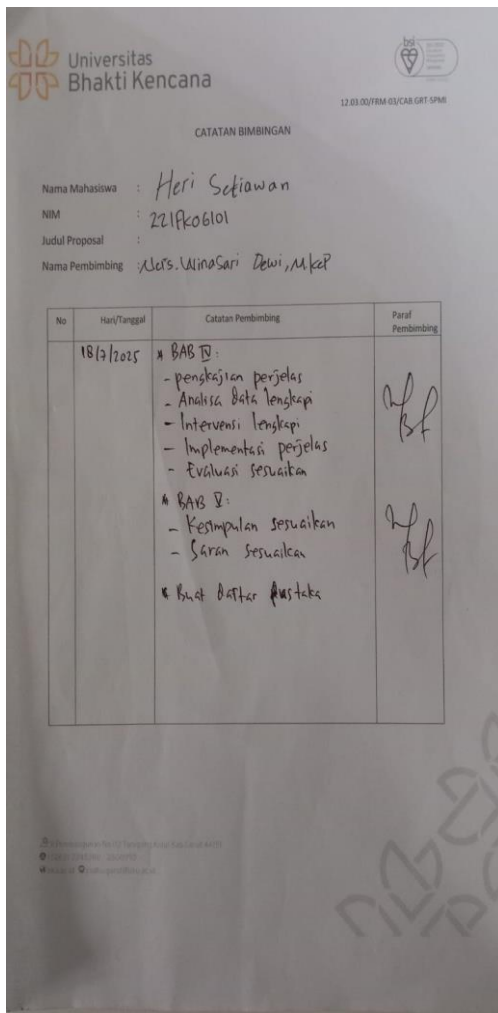 Universitas
Bhakti Kencana
bsi
12.03.00/FRM-03/CAB.GRT-SPMI
CATATAN BIMBINGAN
Nama Mahasiswa : Heri Setiawan
NIM : 221FK06101
Judul Proposal :
Nama Pembimbing : Ners. Winasari Dewi, M.Kep
No Hari/Tanggal Catatan Pembimbing Paraf Pembimbing
18/7/2025 * BAB IV :
- pengkajian perjelas
- Analisa data lengkapi
- Intervensi lengkapi
- Implementasi perjelas
- Evaluasi sesuaikan
* BAB V :
- Kesimpulan sesuaikan
- Saran sesuaikan
* Buat daftar pustaka